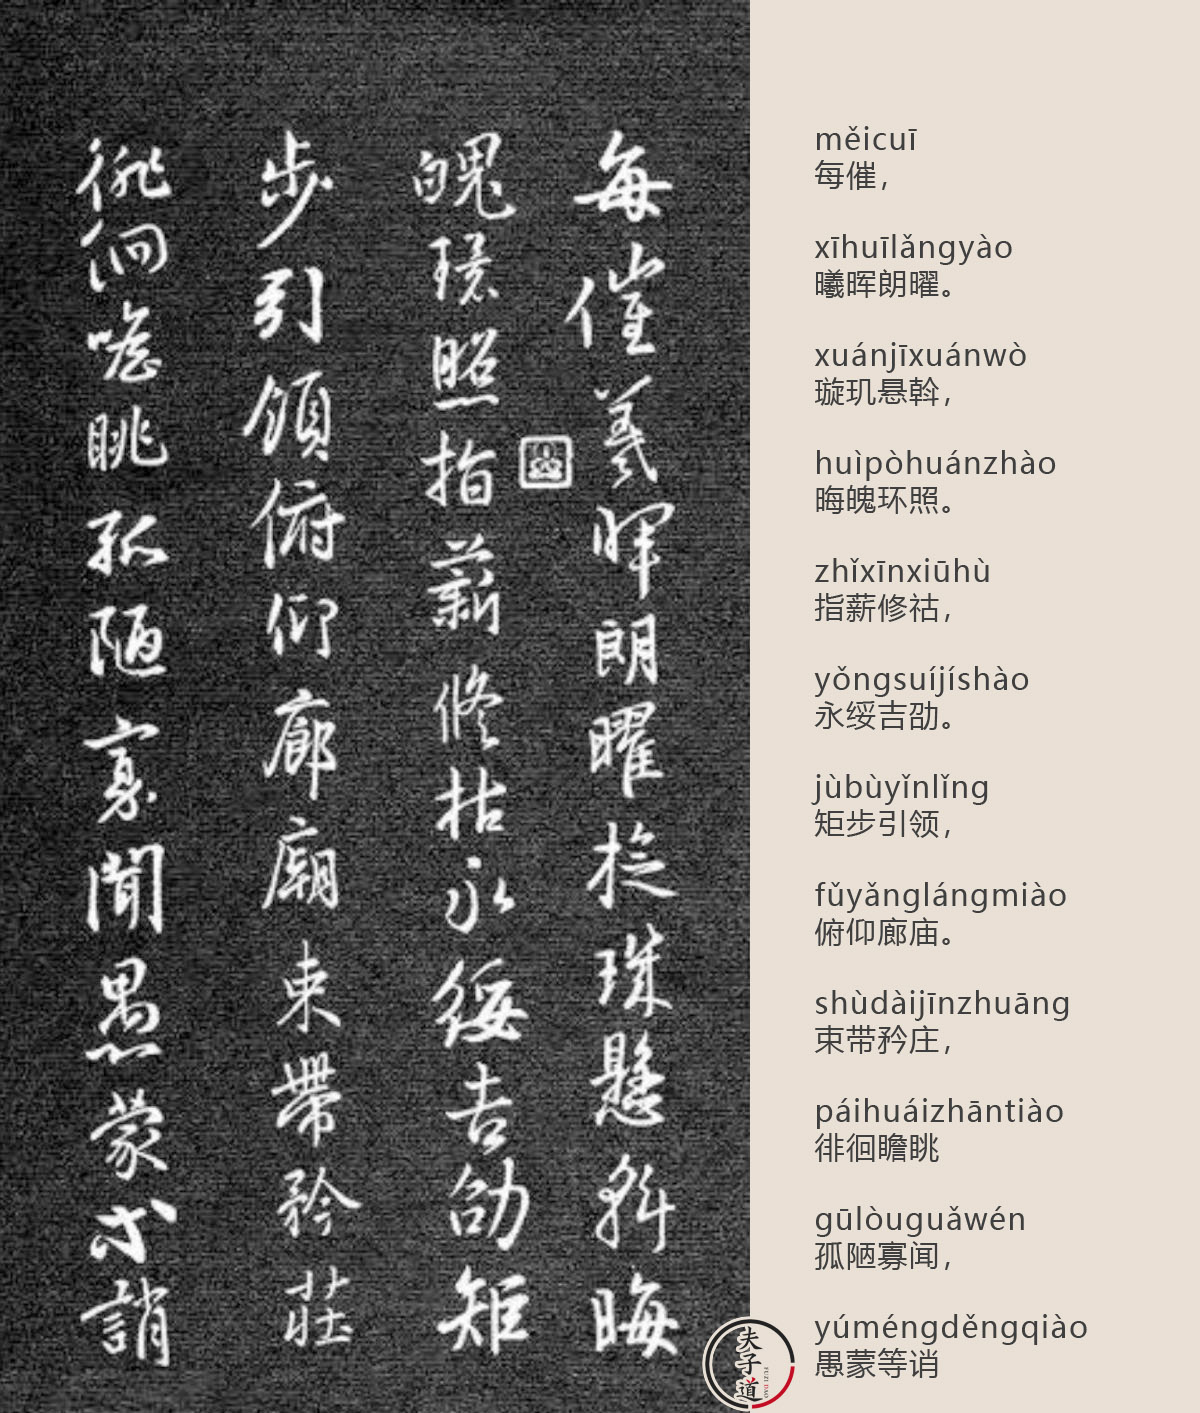 每催羲暉朗曜旋珠懸斡晦
魄環照指薪修祜永綏吉劭矩
步引領俯仰廊廟束帶矜莊
徘徊瞻眺孤陋寡聞愚蒙等誚
měicuī
每催，
xīhuīlǎngyào
曦晖朗曜。
xuánjīxuánwò
璇玑悬斡，
huìpòhuánzhào
晦魄环照。
zhǐxīnxiūhù
指薪修祜，
yǒngsuíjíshào
永绥吉劭。
jùbùyǐnlǐng
矩步引领，
fǔyǎnglángmiào
俯仰廊庙。
shùdàijīnzhuāng
束带矜庄，
páihuáizhāntiào
徘徊瞻眺
gūlòuguǎwén
孤陋寡闻，
yúméngděngqiào
愚蒙等诮
夫子道
FUZI DAO